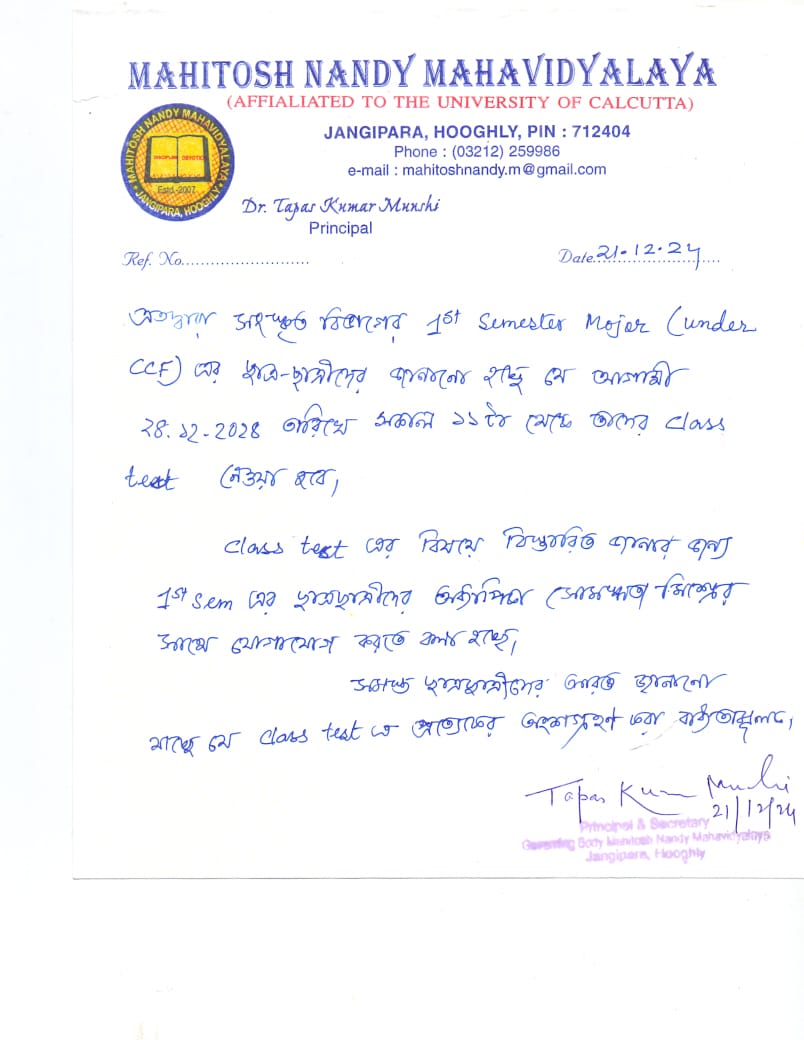 MAHITOSH NANDY MAHAVIDYALAYA
(AFFIALIATED TO THE UNIVERSITY OF CALCUTTA)
MAHITOSH NANDY MAHAVIDYALAYA
DISCIPLINE DEVOTION
Estd.-2007
JANGIPARA, HOOGHLY
JANGIPARA, HOOGHLY, PIN : 712404
Phone : (03212) 259986
e-mail : mahitoshnandy.m@gmail.com
Dr. Tapas Kumar Munshi
Principal
Ref. No..........................
Date 21.12.24
এতদ্বারা সংস্কৃত বিভাগের 1st Semester Major (under
CCF) এর ছাত্র-ছাত্রীদের জানানো হচ্ছে যে আগামী
২৪.১২-2০২৪ তারিখে সকাল ১১টা থেকে তাদের class
test নেওয়া হবে,
Class test এর বিষয়ে বিস্তারিত জানার জন্য
1st sem এর ছাত্রছাত্রীদের অধ্যাপিকা সোমদত্তা মিশ্রের
সাথে যোগাযোগ করতে বলা হচ্ছে,
সমস্ত ছাত্রছাত্রীদের আরও জানানো
যাচ্ছে যে class test এ প্রত্যেকের অংশগ্রহণ করা বাধ্যতামূলক,
Tapas Kumar Munshi
21/12/24
Principal & Secretary
Governing Body Mahitosh Nandy Mahavidyalaya
Jangipara, Hooghly